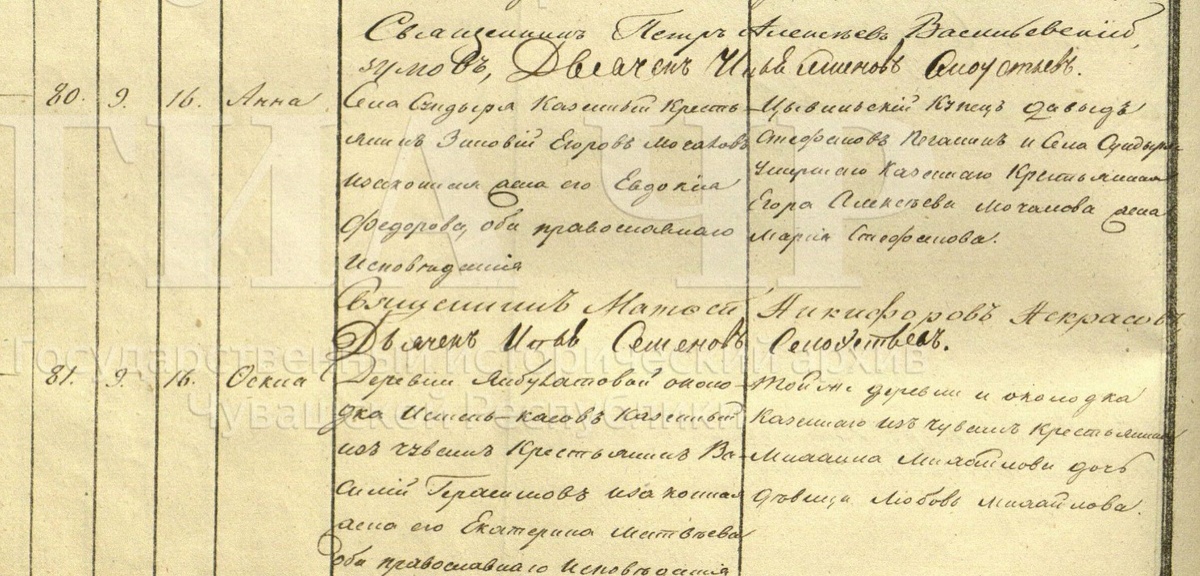 Священникъ Петръ Алексѣевъ Васильевскій,
умовъ, Дьячекъ Илья Семеновъ
80. 9. 16. Анна
Села Сундыря Казенный кресть-
янинъ Зиновій Егоровъ Мочаловъ
и законная жена его Евдокія
Федорова, оба православнаго
Исповѣданія
Цывильскій Купецъ Давыдъ
Стефановъ Пегасинъ и Села Сундыря
Умершаго Казеннаго Крестьянина
Егора Алексѣева Мочалова жена
Марія Стефанова.
Священникъ Матѳей Никифоровъ Некрасовъ,
Дьячекъ Илья Семеновъ
81. 9. 16.
Деревни Янбухтовой около-
дка касовъ Казенный
изъ чувашъ Крестьянинъ Ва-
силій Герасимовъ и законная
жена его Екатерина Матвѣева
оба православнаго Исповѣданія
Той же деревни и околодка
Казеннаго изъ чувашъ Крестьянина
Михаила Михайлова дочь
дѣвица Любовь Михайлова.
ГИА ЧР
Государственный исторический архив
Чувашской Республики